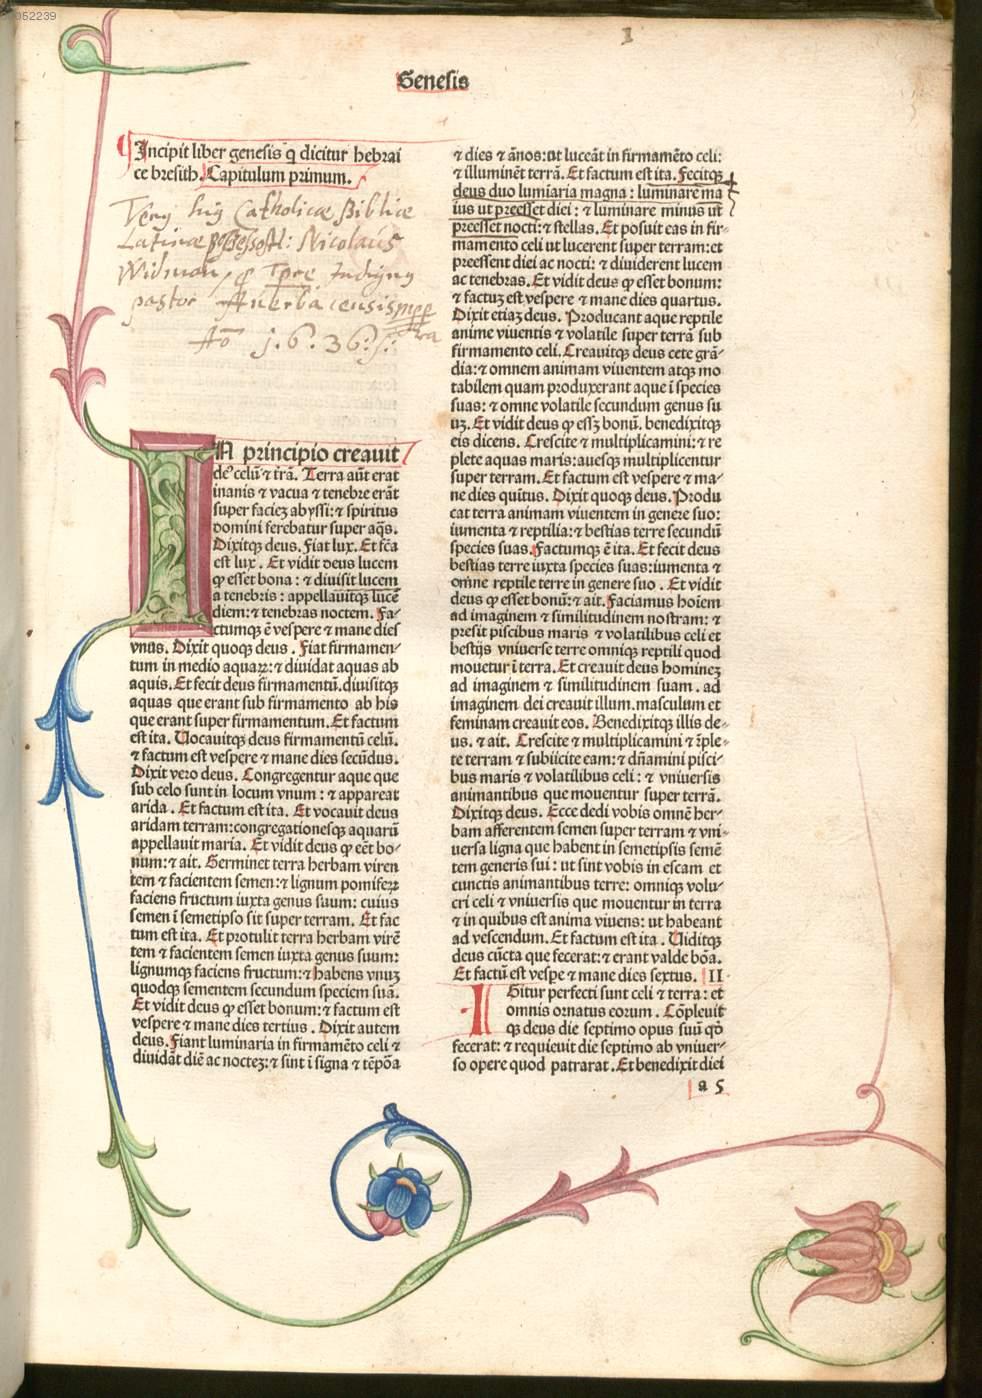 052239
1
Genesis
Incipit liber genesis q̃ dicitur hebrai
ce bresith. Capitulum primum.
hui9 Catholicæ Bibliæ
Latinæ Nicolaus
Widman,
pastor
Aō 1.6.36.
IN principio creauit
de9 celū ⁊ t̄rā. Terra aūt erat
inanis ⁊ vacua ⁊ tenebre erāt
super faciez abyssi: ⁊ spiritus
domini ferebatur super aq̄s.
Dixitqꝫ deus. Fiat lux. Et fc̄a
est lux. Et vidit deus lucem
ꝙ esset bona: ⁊ diuisit lucem
a tenebris: appellauitqꝫ lucē
diem: ⁊ tenebras noctem. Fa-
ctumqꝫ ē vespere ⁊ mane dies
vnus. Dixit quoqꝫ deus. Fiat firmamen-
tum in medio aquaꝝ: ⁊ diuidat aquas ab
aquis. Et fecit deus firmamentū. diuisitqꝫ
aquas que erant sub firmamento ab his
que erant super firmamentum. Et factum
est ita. Uocauitqꝫ deus firmamentū celū.
⁊ factum est vespere ⁊ mane dies secūdus.
Dixit vero deus. Congregentur aque que
sub celo sunt in locum vnum: ⁊ appareat
arida. Et factum est ita. Et vocauit deus
aridam terram: congregationesqꝫ aquarū
appellauit maria. Et vidit deus ꝙ eēt bo-
num: ⁊ ait. Germinet terra herbam viren
tem ⁊ facientem semen: ⁊ lignum pomiferꝝ
faciens fructum iuxta genus suum: cuius
semen ī semetipso sit super terram. Et fac
tum est ita. Et protulit terra herbam virē
tem ⁊ facientem semen iuxta genus suum:
lignumqꝫ faciens fructum: ⁊ habens vnuz
quodqꝫ sementem secundum speciem suā.
Et vidit deus ꝙ esset bonum: ⁊ factum est
vespere ⁊ mane dies tertius. Dixit autem
deus. Fiant luminaria in firmamēto celi ⁊
diuidāt diē ac noctez: ⁊ sint ī signa ⁊ tēpōa
⁊ dies ⁊ ānos: ut luceāt in firmamēto celi:
⁊ illuminēt terrā. Et factum est ita. Fecitqꝫ
deus duo lumiaria magna: luminare ma
ius ut preesset diei: ⁊ luminare minus ut
preesset nocti: ⁊ stellas. Et posuit eas in fir-
mamento celi ut lucerent super terram: et
preessent diei ac nocti: ⁊ diuiderent lucem
ac tenebras. Et vidit deus ꝙ esset bonum:
⁊ factuz est vespere ⁊ mane dies quartus.
Dixit etiaz deus. Producant aque reptile
anime viuentis ⁊ volatile super terrā sub
firmamento celi. Creauitqꝫ deus cete grā-
dia: ⁊ omnem animam viuentem atqꝫ mo
tabilem quam produxerant aque ī species
suas: ⁊ omne volatile secundum genus su
uz. Et vidit deus ꝙ essꝫ bonū. benedixitqꝫ
eis dicens. Crescite ⁊ multiplicamini: ⁊ re
plete aquas maris: auesqꝫ multiplicentur
super terram. Et factum est vespere ⁊ ma-
ne dies quītus. Dixit quoqꝫ deus. Produ
cat terra animam viuentem in genere suo:
iumenta ⁊ reptilia: ⁊ bestias terre secundū
species suas. Factumqꝫ ē ita. Et fecit deus
bestias terre iuxta species suas: iumenta ⁊
omne reptile terre in genere suo. Et vidit
deus ꝙ esset bonū: ⁊ ait. Faciamus hoīem
ad imaginem ⁊ similitudinem nostram: ⁊
presit piscibus maris ⁊ volatilibus celi et
bestijs vniuerse terre omniqꝫ reptili quod
mouetur ī terra. Et creauit deus hominez
ad imaginem ⁊ similitudinem suam. ad
imaginem dei creauit illum. masculum et
feminam creauit eos. Benedixitqꝫ illis de-
us. ⁊ ait. Crescite ⁊ multiplicamini ⁊ īple-
te terram ⁊ subiicite eam: ⁊ dn̄amini pisci-
bus maris ⁊ volatilibus celi: ⁊ vniuersis
animantibus que mouentur super terrā.
Dixitqꝫ deus. Ecce dedi vobis omnē her-
bam afferentem semen super terram ⁊ vni-
uersa ligna que habent in semetipsis semē
tem generis sui: ut sint vobis in escam et
cunctis animantibus terre: omniqꝫ volu-
cri celi ⁊ vniuersis que mouentur in terra
⁊ in quibus est anima viuens: ut habeant
ad vescendum. Et factum est ita. Uiditqꝫ
deus cūcta que fecerat: ⁊ erant valde bōa.
Et factū est vespe ⁊ mane dies sextus. II
IGitur perfecti sunt celi ⁊ terra: et
omnis ornatus eorum. Cōpleuit
qꝫ deus die septimo opus suū qō
fecerat: ⁊ requieuit die septimo ab vniuer-
so opere quod patrarat. Et benedixit diei
a 5